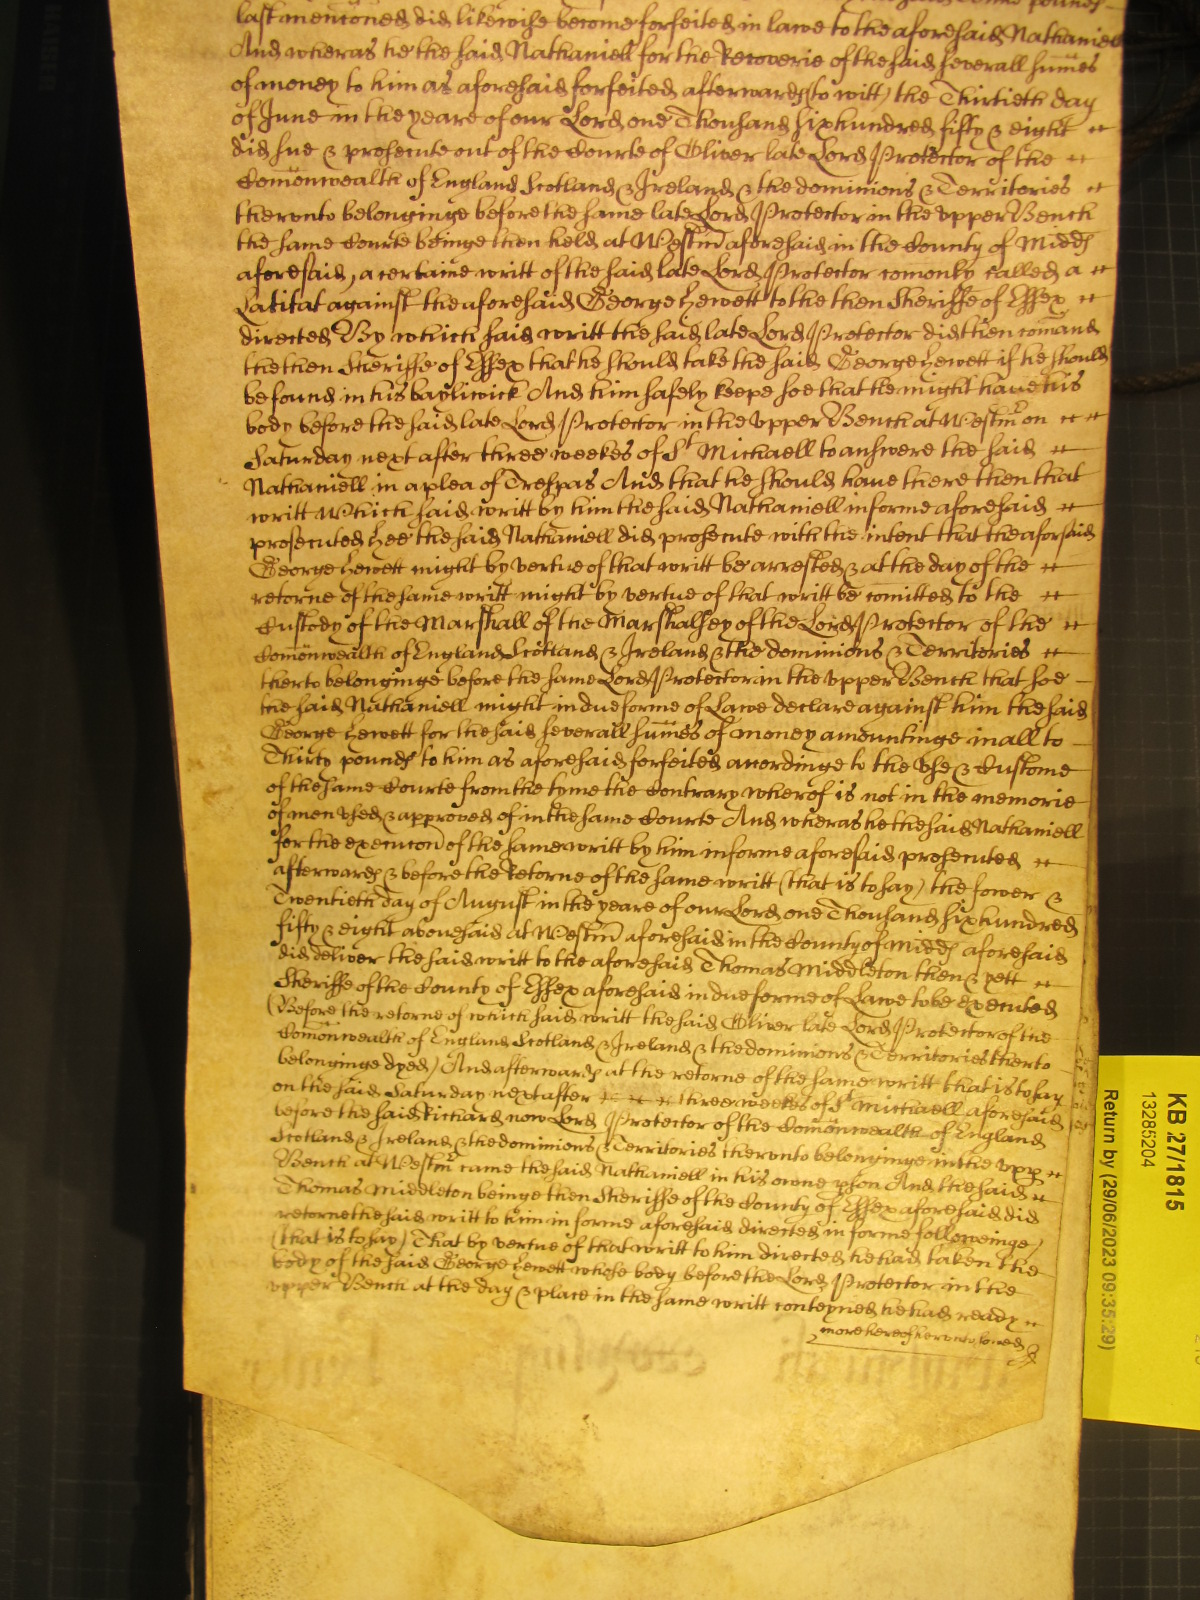 pounds
last menc̄oned did likewise become forfeited in lawe to the aforesaid Nathaniell
And wheras he the said Nathaniell for the Recoverie of the said severall sum̄es
of money to him as aforesaid forfeited afterwards (to witt) the Thirtieth day
of June in the yeare of our Lord one Thousand six hundred fifty & eight
did sue & prosecute out of the Courte of Oliver late Lord Protector of the
Com̄onwealth of England Scotland & Ireland & the dominions & Territories
therunto belonginge before the same late Lord Protector in the vpper Bench
the same Courte beinge then held at Westm̄ aforesaid in the County of Midds
aforesaid, a certaine writt of the said late Lord Protector com̄only called a
Latitat against the aforesaid George Hewett to the then Sheriffe of Essex
directed By which said writt the said late Lord Protector did then com̄and
the then Sheriffe of Essex that he should take the said George Hewett if he should
be found in his bayliwick And him safely keepe soe that he might have his
body before the said late Lord Protector in the vpper Bench at Westm̄ on
Saturday next after three weekes of St Michaell to answere the said
Nathaniell in a plea of Trespas And that he should have there then that
writt Which said writt by him the said Nathaniell in forme aforesaid
prosecuted hee the said Nathaniell did prosecute with the intent that the aforsaid
George Hewett might by vertue of that writt be arrested & at the day of the
retorne of the same writt might by vertue of that writt be com̄itted to the
Custody of the Marshall of the Marshalsey of the Lord Protector of the
Com̄onwealth of England Scotland & Ireland & the dominions & Territories
therto belonginge before the same Lord Protector in the vpper Bench that soe
the said Nathaniell might in due forme of Lawe declare against him the said
George Hewett for the said severall sum̄es of money amountinge in all to
Thirty pounds to him as aforesaid forfeited accordinge to the Vse & Custome
of the same Courte from the tyme the Contrary wherof is not in the memorie
of men vsed & approved of in the same Courte And wheras he the said Nathaniell
for the execuc̄on of the same writt by him in forme aforesaid prosecuted
afterwards & before the Retorne of the same writt (that is to say) the fower &
Twentieth day of August in the yeare of our Lord one Thousand six hundred
fifty & eight abovesaid at Westm̄ aforesaid in the County of Midds aforesaid
did deliver the said writt to the aforesaid Thomas Middleton then & yett
Sheriffe of the County of Essex aforesaid in due forme of Lawe to be executed
(Before the retorne of which said writt the said Oliver late Lord Protector of the
Com̄onwealth of England Scotland & Ireland & the dominions & Territories therto
belonginge dyed) And afterwards at the retorne of the same writt that is to say
on the said Saturday next after three weekes of St Michaell aforesaid
before the said Richard now Lord Protector of the Com̄onwealth of England
Scotland & Ireland & the dominions & Territories therunto belonginge in the vpp
Bench at Westm̄ came the said Nathaniell in his owne pson And the said
Thomas Middleton beinge then Sheriffe of the County of Essex aforesaid did
retorne the said writt to him in forme aforesaid directed in forme followeinge
(that is to say) That by vertue of that writt to him directed he had taken the
body of the said George Hewett whose body before the Lord Protector in the
vpper Bench at the day & place in the same writt conteyned he had ready
more hereof hervnto sowed
KB 27/1815
13285204
Return by (29/06/2023 09:35:29)